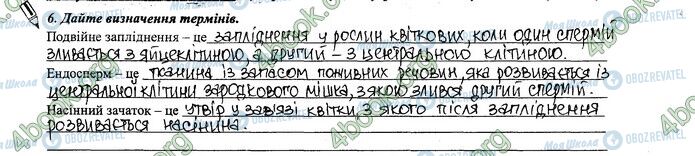 6. Дайте визначення термінів.
Подвійне запліднення – це запліднення у рослин квіткових, коли один спермій
зливається з яйцеклітиною, а другий – з центральною клітиною.
Ендосперм – це тканина із запасом поживних речовин, яка розвивається із
центральної клітини зародкового мішка, з якою злився другий спермій.
Насінний зачаток – це утвір у зав'язі квітки, з якого після запліднення
розвивається насінина.